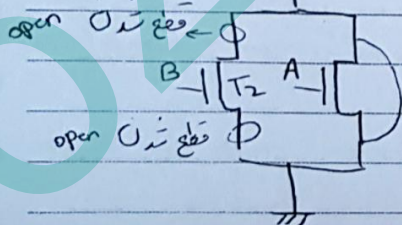 open قطع شدن
B T₂ A
open قطع شدن